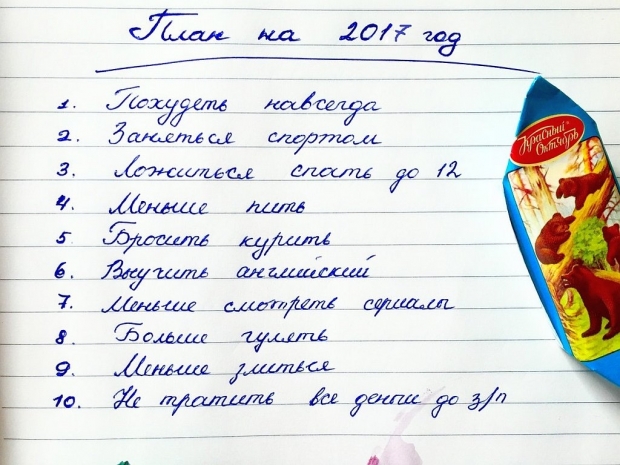 План на 2017 год
1. Похудеть навсегда
2. Заняться спортом
3. Ложиться спать до 12
4. Меньше пить
5. Бросить курить
6. Выучить английский
7. Меньше смотреть сериалы
8. Больше гулять
9. Меньше злиться
10. Не тратить все деньги до з/п
Красный
Октябрь